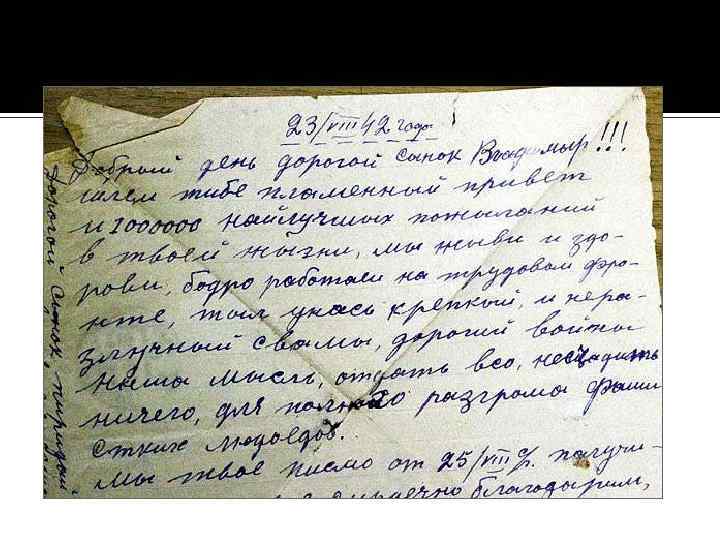 23/VIII 42 года
Добрый день дорогой сынок Владимыр!!!
шлем тибе пламенный привет
и 1000000 найлучших пожыланий
в твоей жызни, мы жывы и здо-
ровы, бодро работаем на трудовом фро-
нте, тыл унась крепкый, и нера-
злучный свамы, дорогий войны
наша мысль, отдать всо, нещадить
ничего, для полного разгрома фаши
стких людоедов.
Мы твое писмо от 25/VIII с/г. получи-
благодарим,
Дорогой сынок,